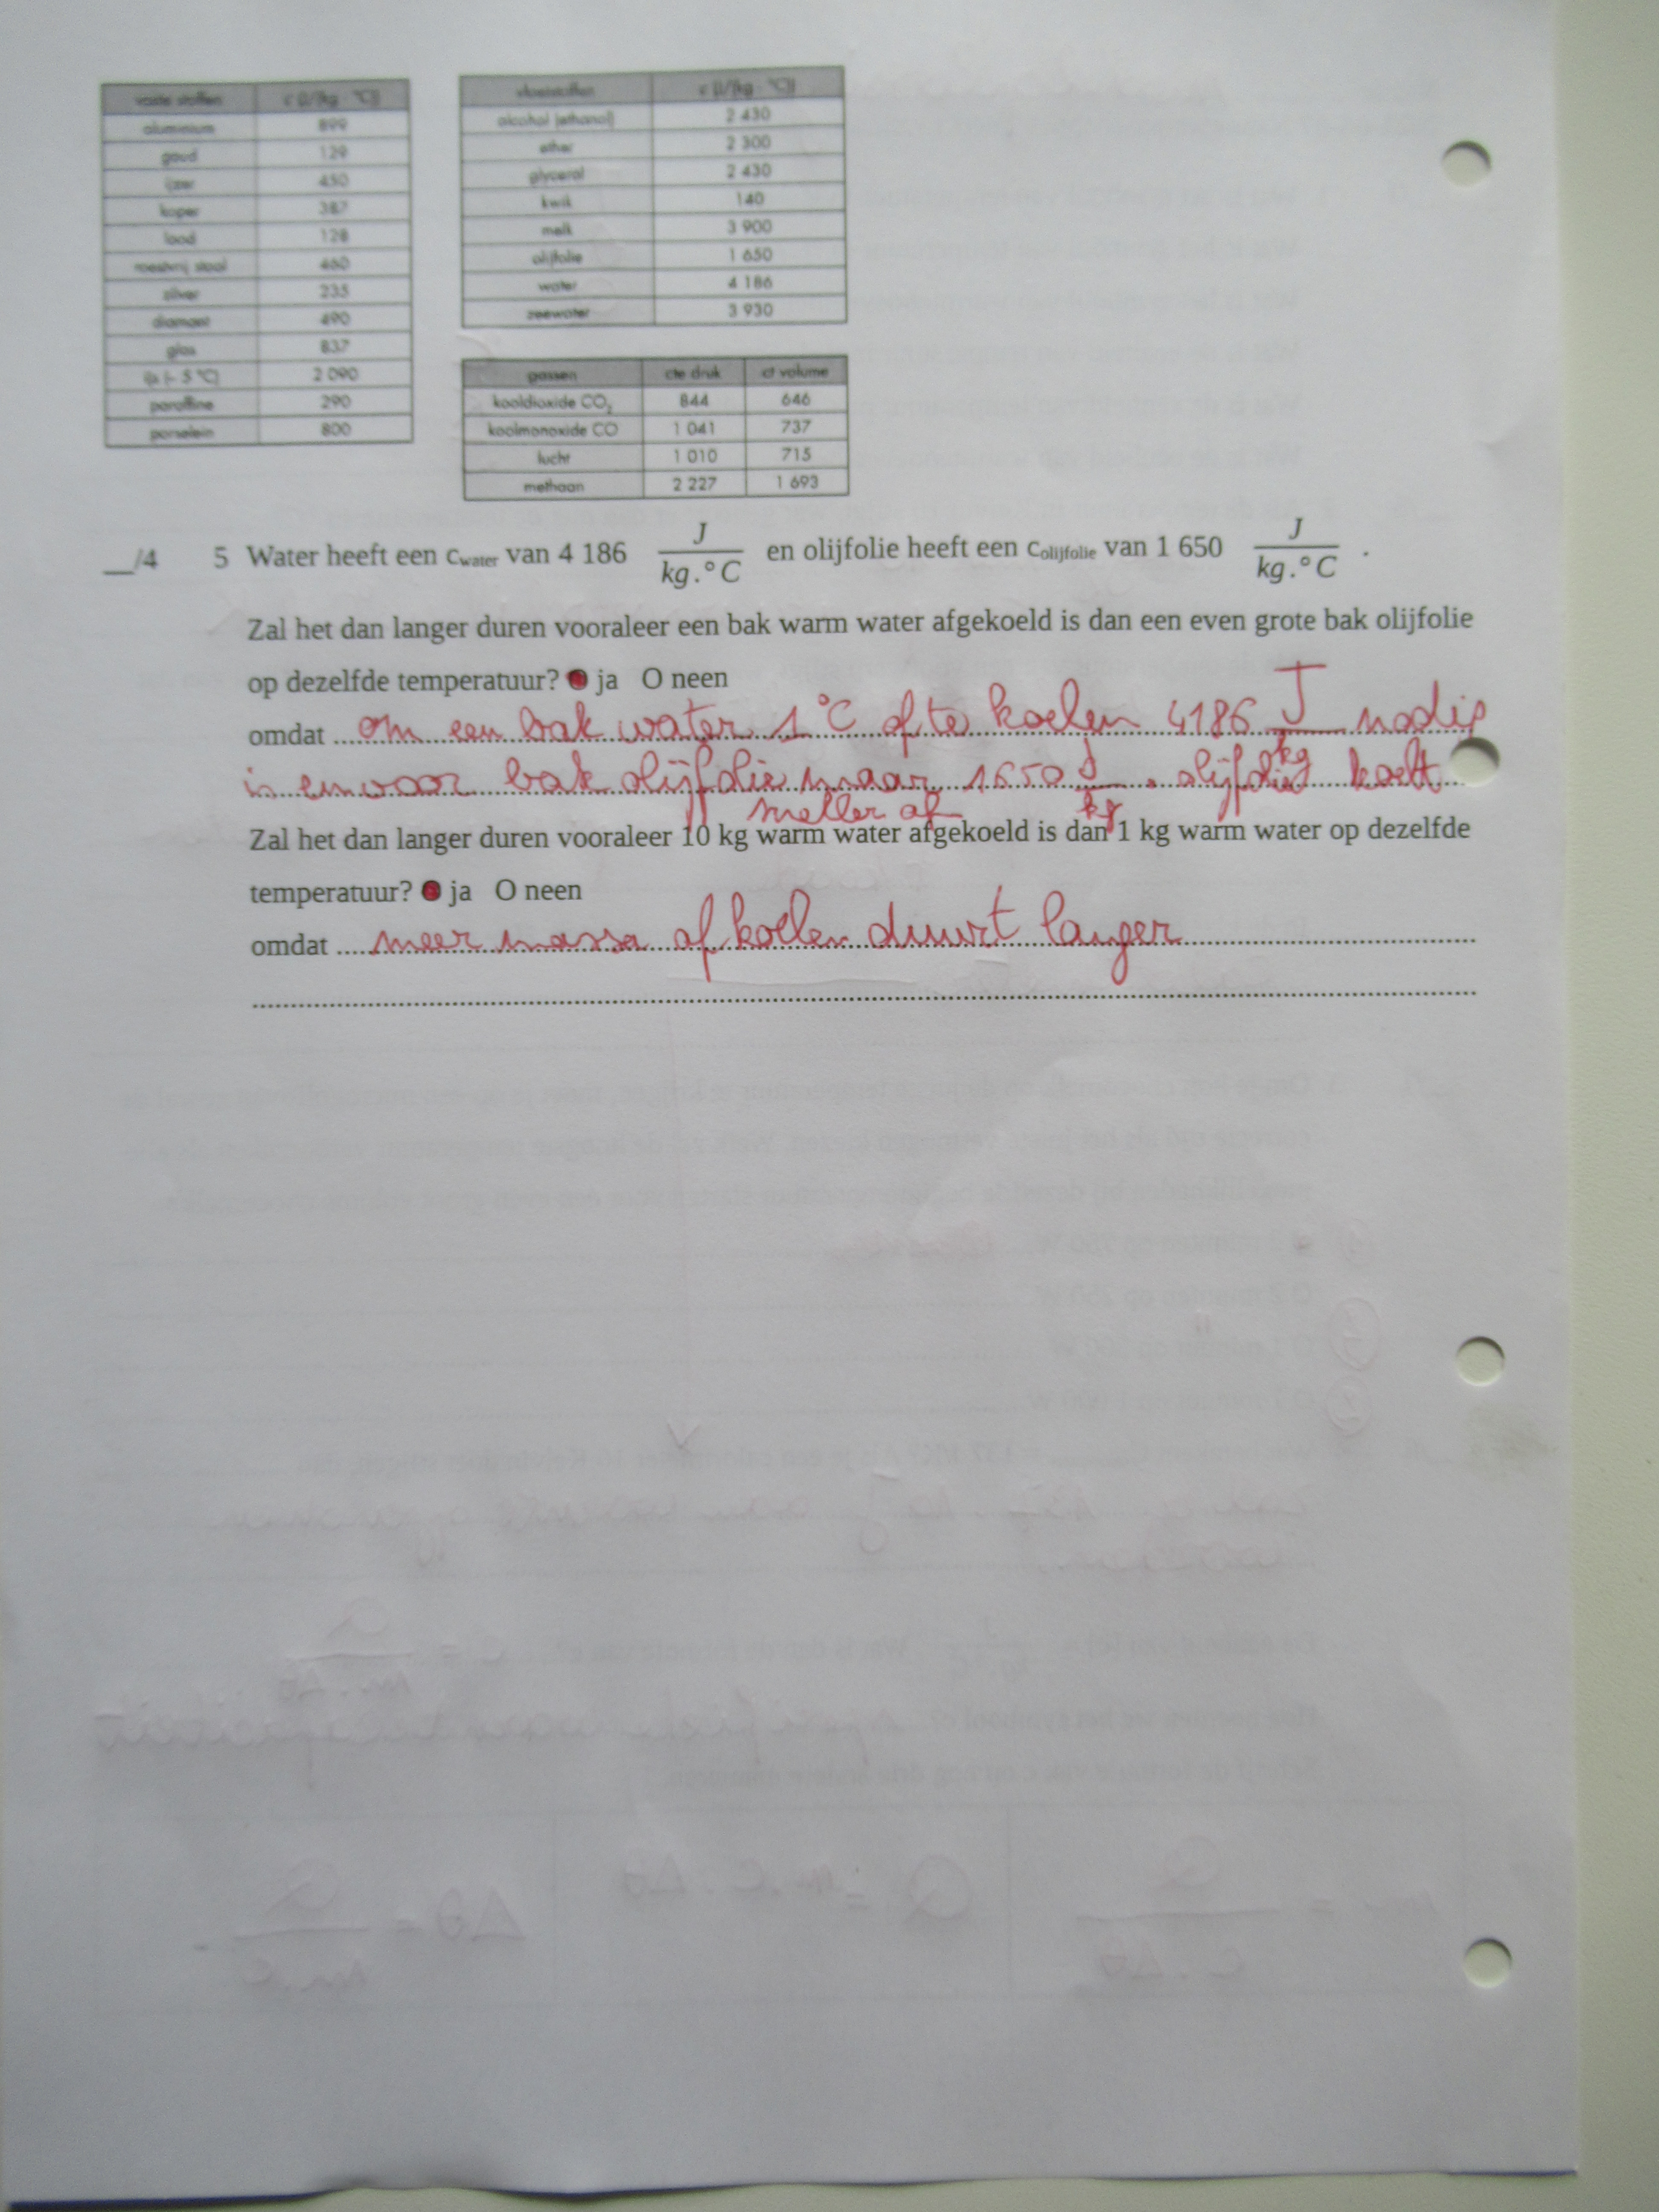 vaste stoffen c (J/(kg · °C))
aluminium 899
goud 129
ijzer 450
koper 387
lood 128
roestvrij staal 460
zilver 235
diamant 490
glas 837
ijs (- 5 °C) 2 090
paraffine 290
porselein 800
vloeistoffen c (J/(kg · °C))
alcohol (ethanol) 2 430
ether 2 300
glycerol 2 430
kwik 140
melk 3 900
olijfolie 1 650
water 4 186
zeewater 3 930
gassen cte druk ct volume
kooldioxide CO₂ 844 646
koolmonoxide CO 1 041 737
lucht 1 010 715
methaan 2 227 1 693
__/4 5 Water heeft een cwater van 4 186 J/kg.°C en olijfolie heeft een colijfolie van 1 650 J/kg.°C .
Zal het dan langer duren vooraleer een bak warm water afgekoeld is dan een even grote bak olijfolie
op dezelfde temperatuur? ja O neen
omdat om een bak water 1 °C af te koelen 4186 J/kg nodig
is en voor bak olijfolie maar 1650 J/kg. olijfolie koelt
sneller af
Zal het dan langer duren vooraleer 10 kg warm water afgekoeld is dan 1 kg warm water op dezelfde
temperatuur? ja O neen
omdat meer massa afkoelen duurt langer